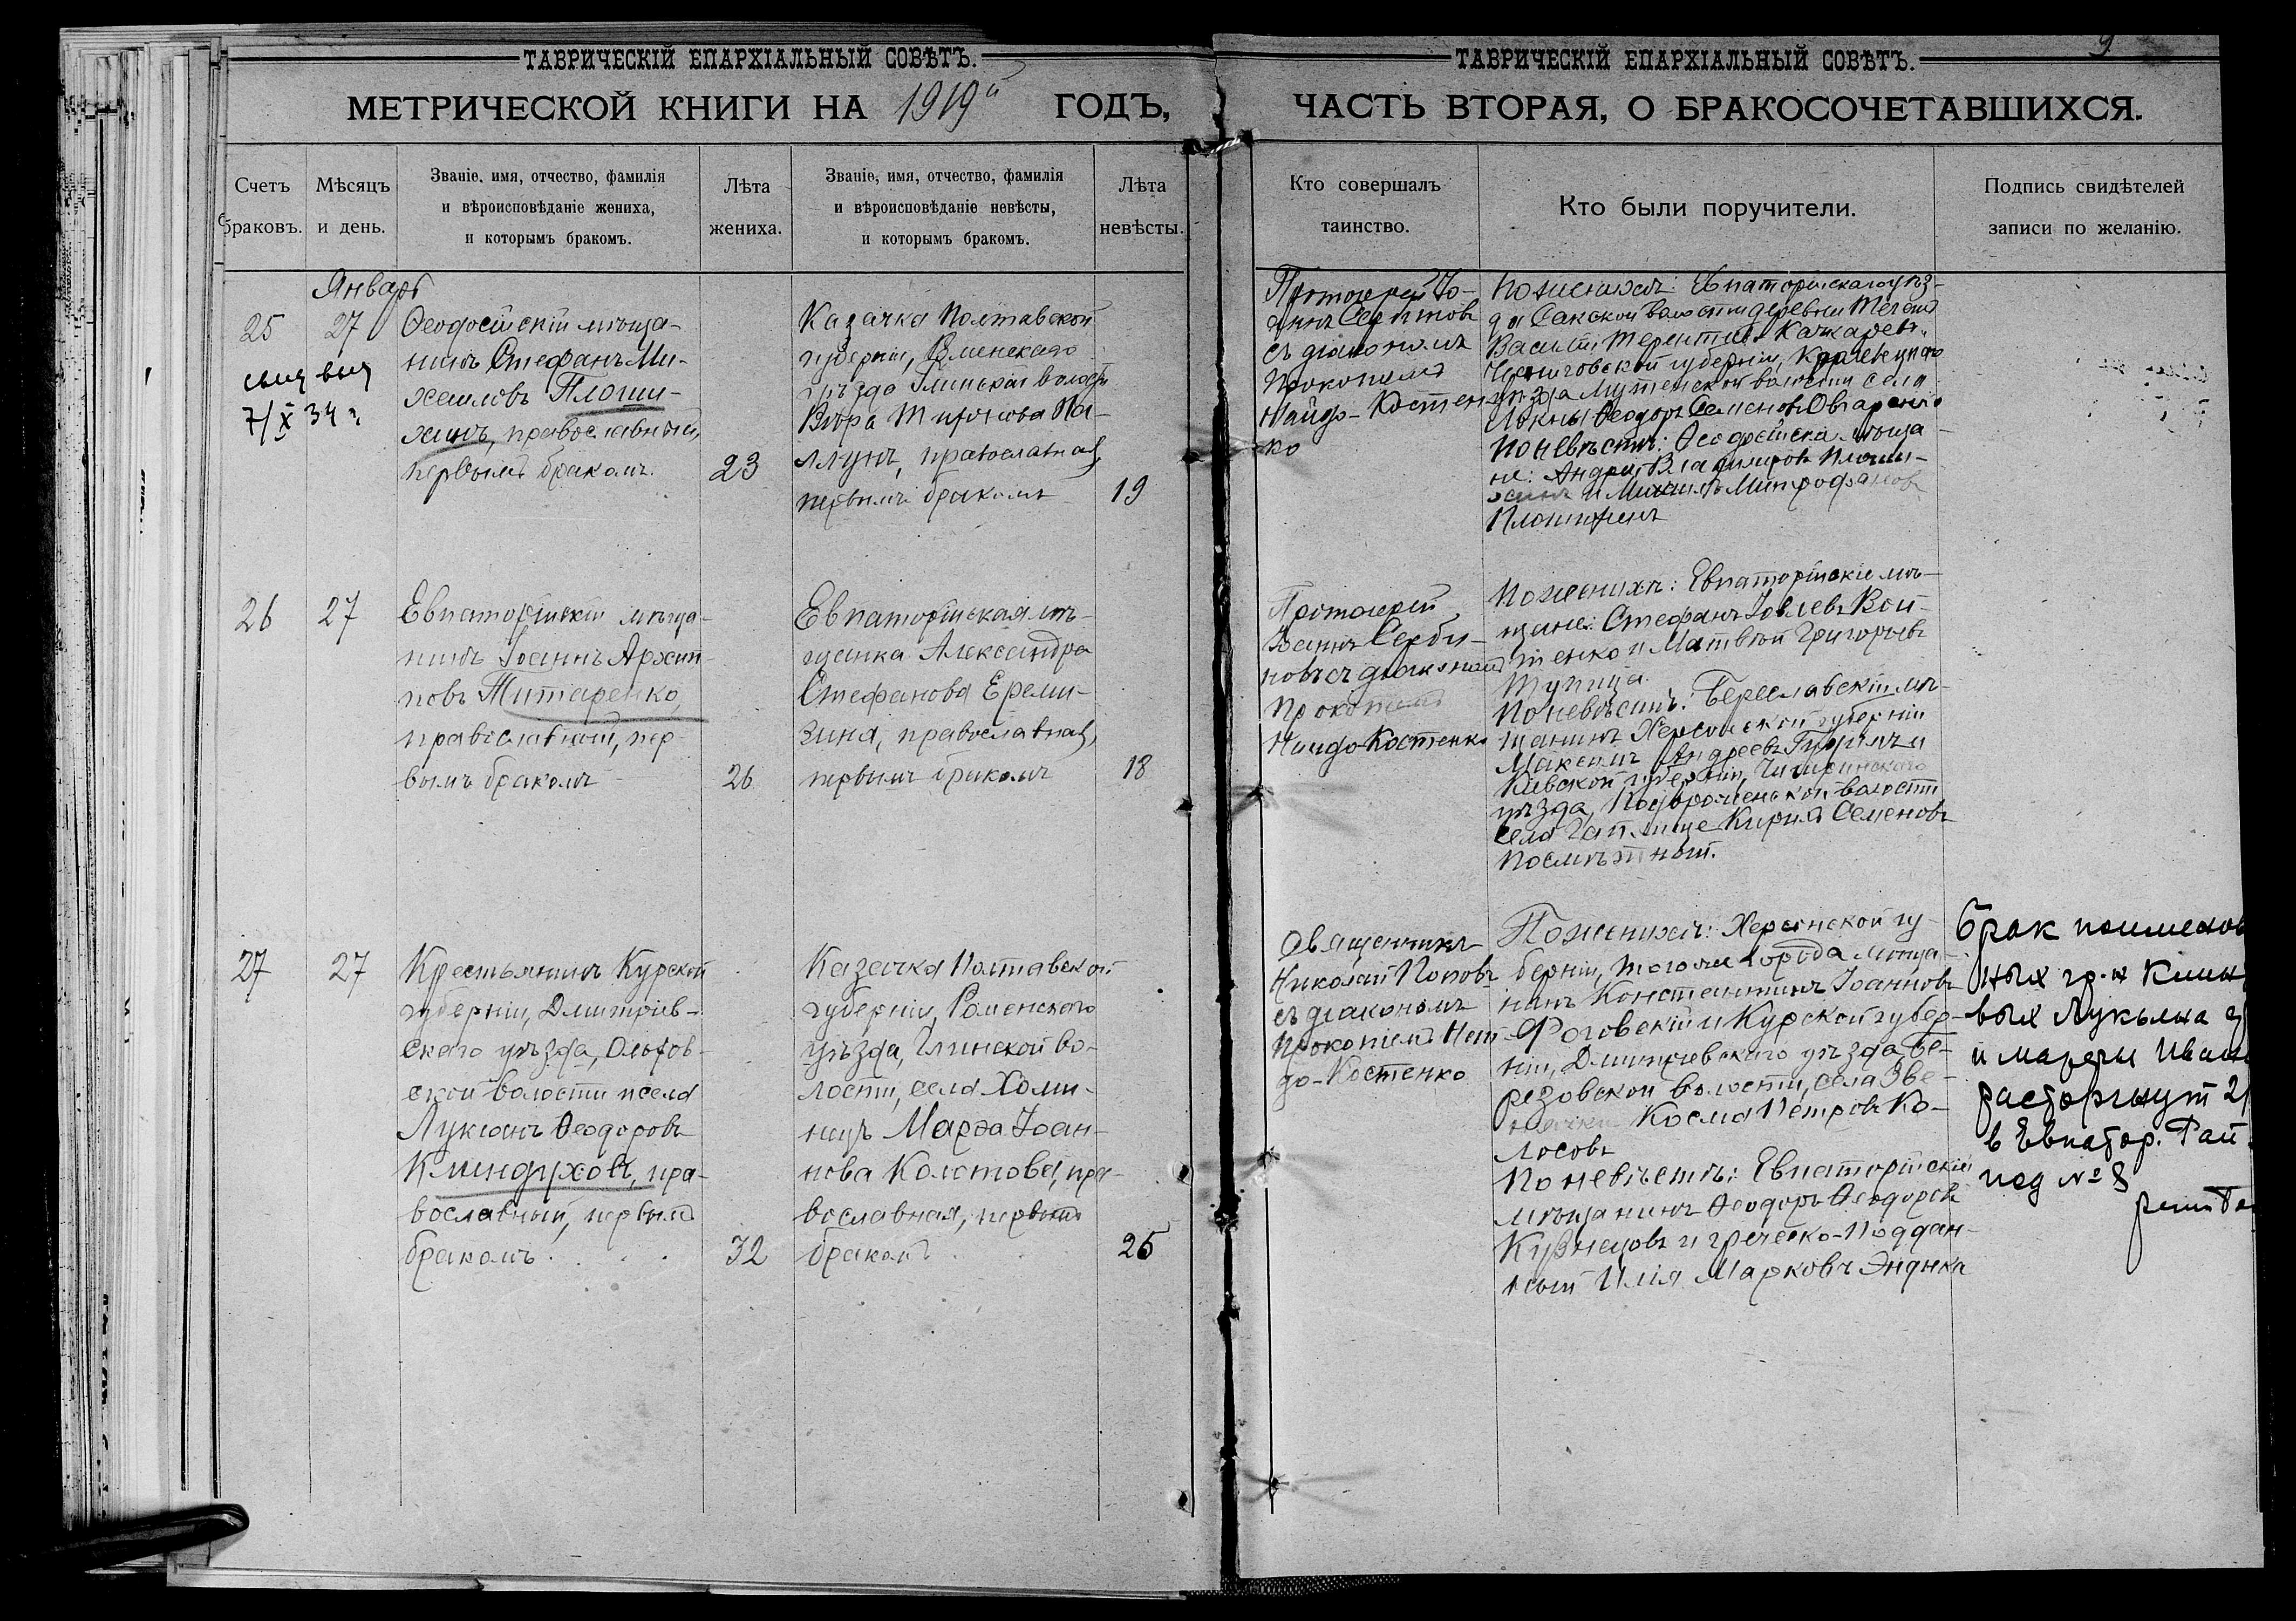 ТАВРИЧЕСКІЙ ЕПАРХІАЛЬНЫЙ СОВѢТЪ.
МЕТРИЧЕСКОЙ КНИГИ НА 1919й ГОДЪ,
Счетъ браковъ.
Мѣсяцъ и день.
Званіе, имя, отчество, фамилія
и вѣроисповѣданіе жениха,
и которымъ бракомъ.
Лѣта
жениха.
Званіе, имя, отчество, фамилія
и вѣроисповѣданіе невѣсты,
и которымъ бракомъ.
Лѣта
невѣсты.
Январь
25
27
7/X 34 г
Ѳеодосійскій мѣща-
нинъ Стефанъ Ми-
хаиловъ Плоти-
хинъ, православный,
первымъ бракомъ.
23
Казачка Полтавской
губерніи, Роменскаго
уѣзда Глинской волости
Вѣра
православная,
первымъ бракомъ
19
26
27
Евпаторійскій мѣща-
нинъ Іоаннъ Архип-
повъ Титаренко,
православный, пер-
вымъ бракомъ
26
Евпаторійская мѣ-
щанка Александра
Стефанова Ереми-
зина, православная,
первымъ бракомъ
18
27
27
Крестьянинъ Курской
губерніи, Дмитріев-
скаго уѣзда, Ольхов-
ской волости и села
Лукіанъ Ѳеодоровъ
Клиндуховъ, пра-
вославный, первымъ
бракомъ.
32
Казачка Полтавской
губерніи, Роменскаго
уѣзда, Глинской во-
лости, села Хоми-
нецъ Марѳа Іоан-
нова Колотова, пра-
вославная, первымъ
бракомъ
25
ТАВРИЧЕСКІЙ ЕПАРХІАЛЬНЫЙ СОВѢТЪ.
9
ЧАСТЬ ВТОРАЯ, О БРАКОСОЧЕТАВШИХСЯ.
Кто совершалъ
таинство.
Кто были поручители.
Подпись свидѣтелей
записи по желанію.
Протоіерей Іо-
аннъ Сербиновъ
съ діакономъ
Прокопіемъ
Найдо-Костен-
ко
По женихѣ: Евпаторійскаго уѣз-
да Сакской волости деревни
Василій Терентіевъ
Черниговской губерніи, Кролевецкаго
уѣзда волости села
Ѳеодоръ Семеновъ Овчаренко
По невѣстѣ: Ѳеодосійскіе мѣща-
не: Андрей Владиміровъ Плоти-
хинъ и Михаилъ Митрофановъ
Плотихинъ
Протоіерей
Іоаннъ Серби-
новъ съ діакономъ
Прокопіемъ
Найдо-Костенко
По женихѣ: Евпаторійскіе мѣ-
щане: Стефанъ Іовлевъ Вой-
тенко и Матвѣй Григорьевъ
Тупица.
По невѣстѣ: Бериславскій мѣ-
щанинъ Херсонской губерніи
Максимъ Андреевъ и
Кіевской губерніи, Чигиринскаго
уѣзда, волости
села Кирилъ Семеновъ
Посмѣтный.
Священникъ
Николай Поповъ
съ діакономъ
Прокопіемъ Най-
до-Костенко
По женихѣ: Херсонской гу-
берніи, того же города мѣща-
нинъ Константинъ Іоанновъ
Роговскій и Курской губер-
ніи, Дмитріевскаго уѣзда, Бе-
резовской волости, села
Косма Петровъ Ко-
лосовъ
По невѣстѣ: Евпаторійскій
мѣщанинъ Ѳеодоръ Ѳеодоровъ
Кузнецовъ и греческо-поддан-
ный Илія Марковъ
Брак поименов
ных гр-н Клин
вых Лукьяна
и Марфы Иван
расторгнут 21
в Евпатор.
под № 8